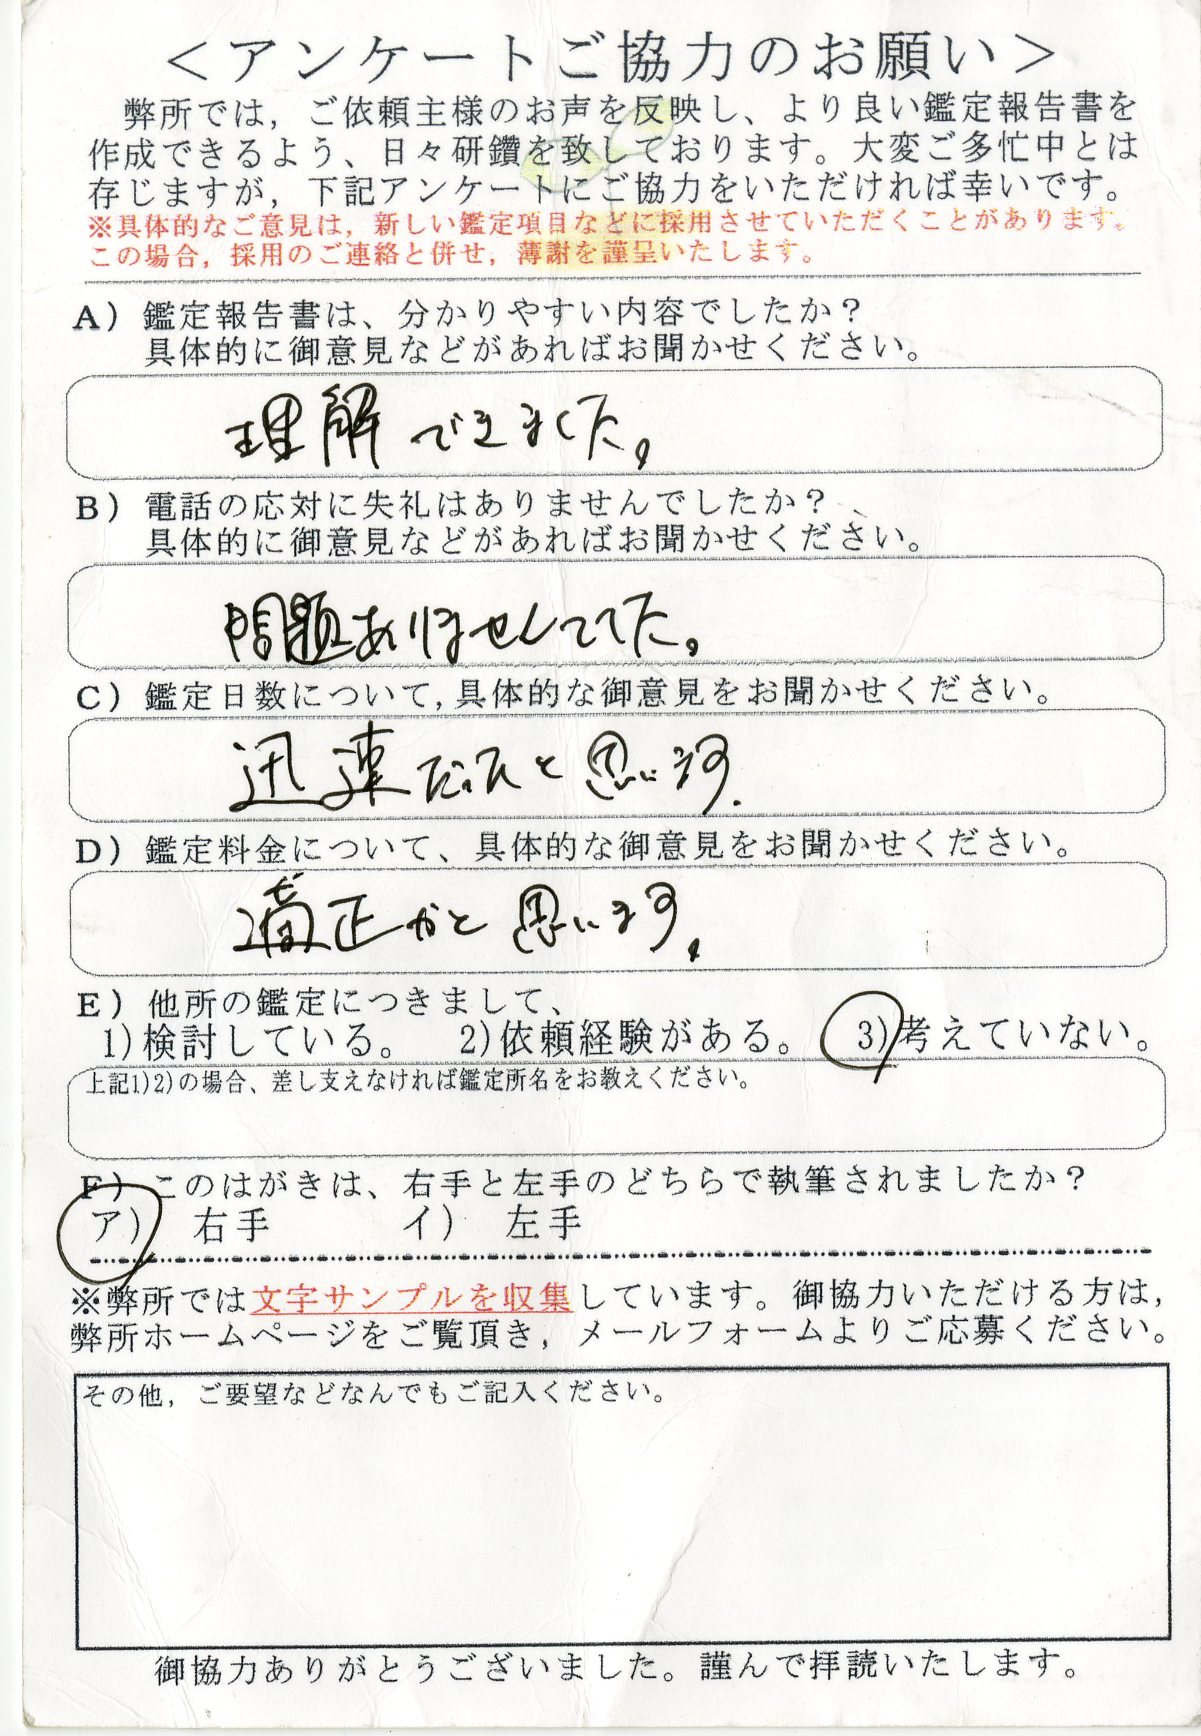 ＜アンケートご協力のお願い＞
弊所では，ご依頼主様のお声を反映し、より良い鑑定報告書を
作成できるよう、日々研鑽を致しております。大変ご多忙中とは
存じますが，下記アンケートにご協力をいただければ幸いです。
※具体的なご意見は，新しい鑑定項目などに採用させていただくことがあります。
この場合，採用のご連絡と併せ，薄謝を謹呈いたします。
A）鑑定報告書は、分かりやすい内容でしたか？
具体的に御意見などがあればお聞かせください。
理解できました。
B）電話の応対に失礼はありませんでしたか？
具体的に御意見などがあればお聞かせください。
問題ありませんでした。
C）鑑定日数について,具体的な御意見をお聞かせください。
迅速だったと思います.
D）鑑定料金について、具体的な御意見をお聞かせください。
適正かと思います。
E）他所の鑑定につきまして、
1)検討している。 2)依頼経験がある。 3)考えていない。
上記1)2)の場合、差し支えなければ鑑定所名をお教えください。
F）このはがきは、右手と左手のどちらで執筆されましたか？
ア） 右手 イ） 左手
※弊所では文字サンプルを収集しています。御協力いただける方は,
弊所ホームページをご覧頂き，メールフォームよりご応募ください。
その他，ご要望などなんでもご記入ください。
御協力ありがとうございました。謹んで拝読いたします。